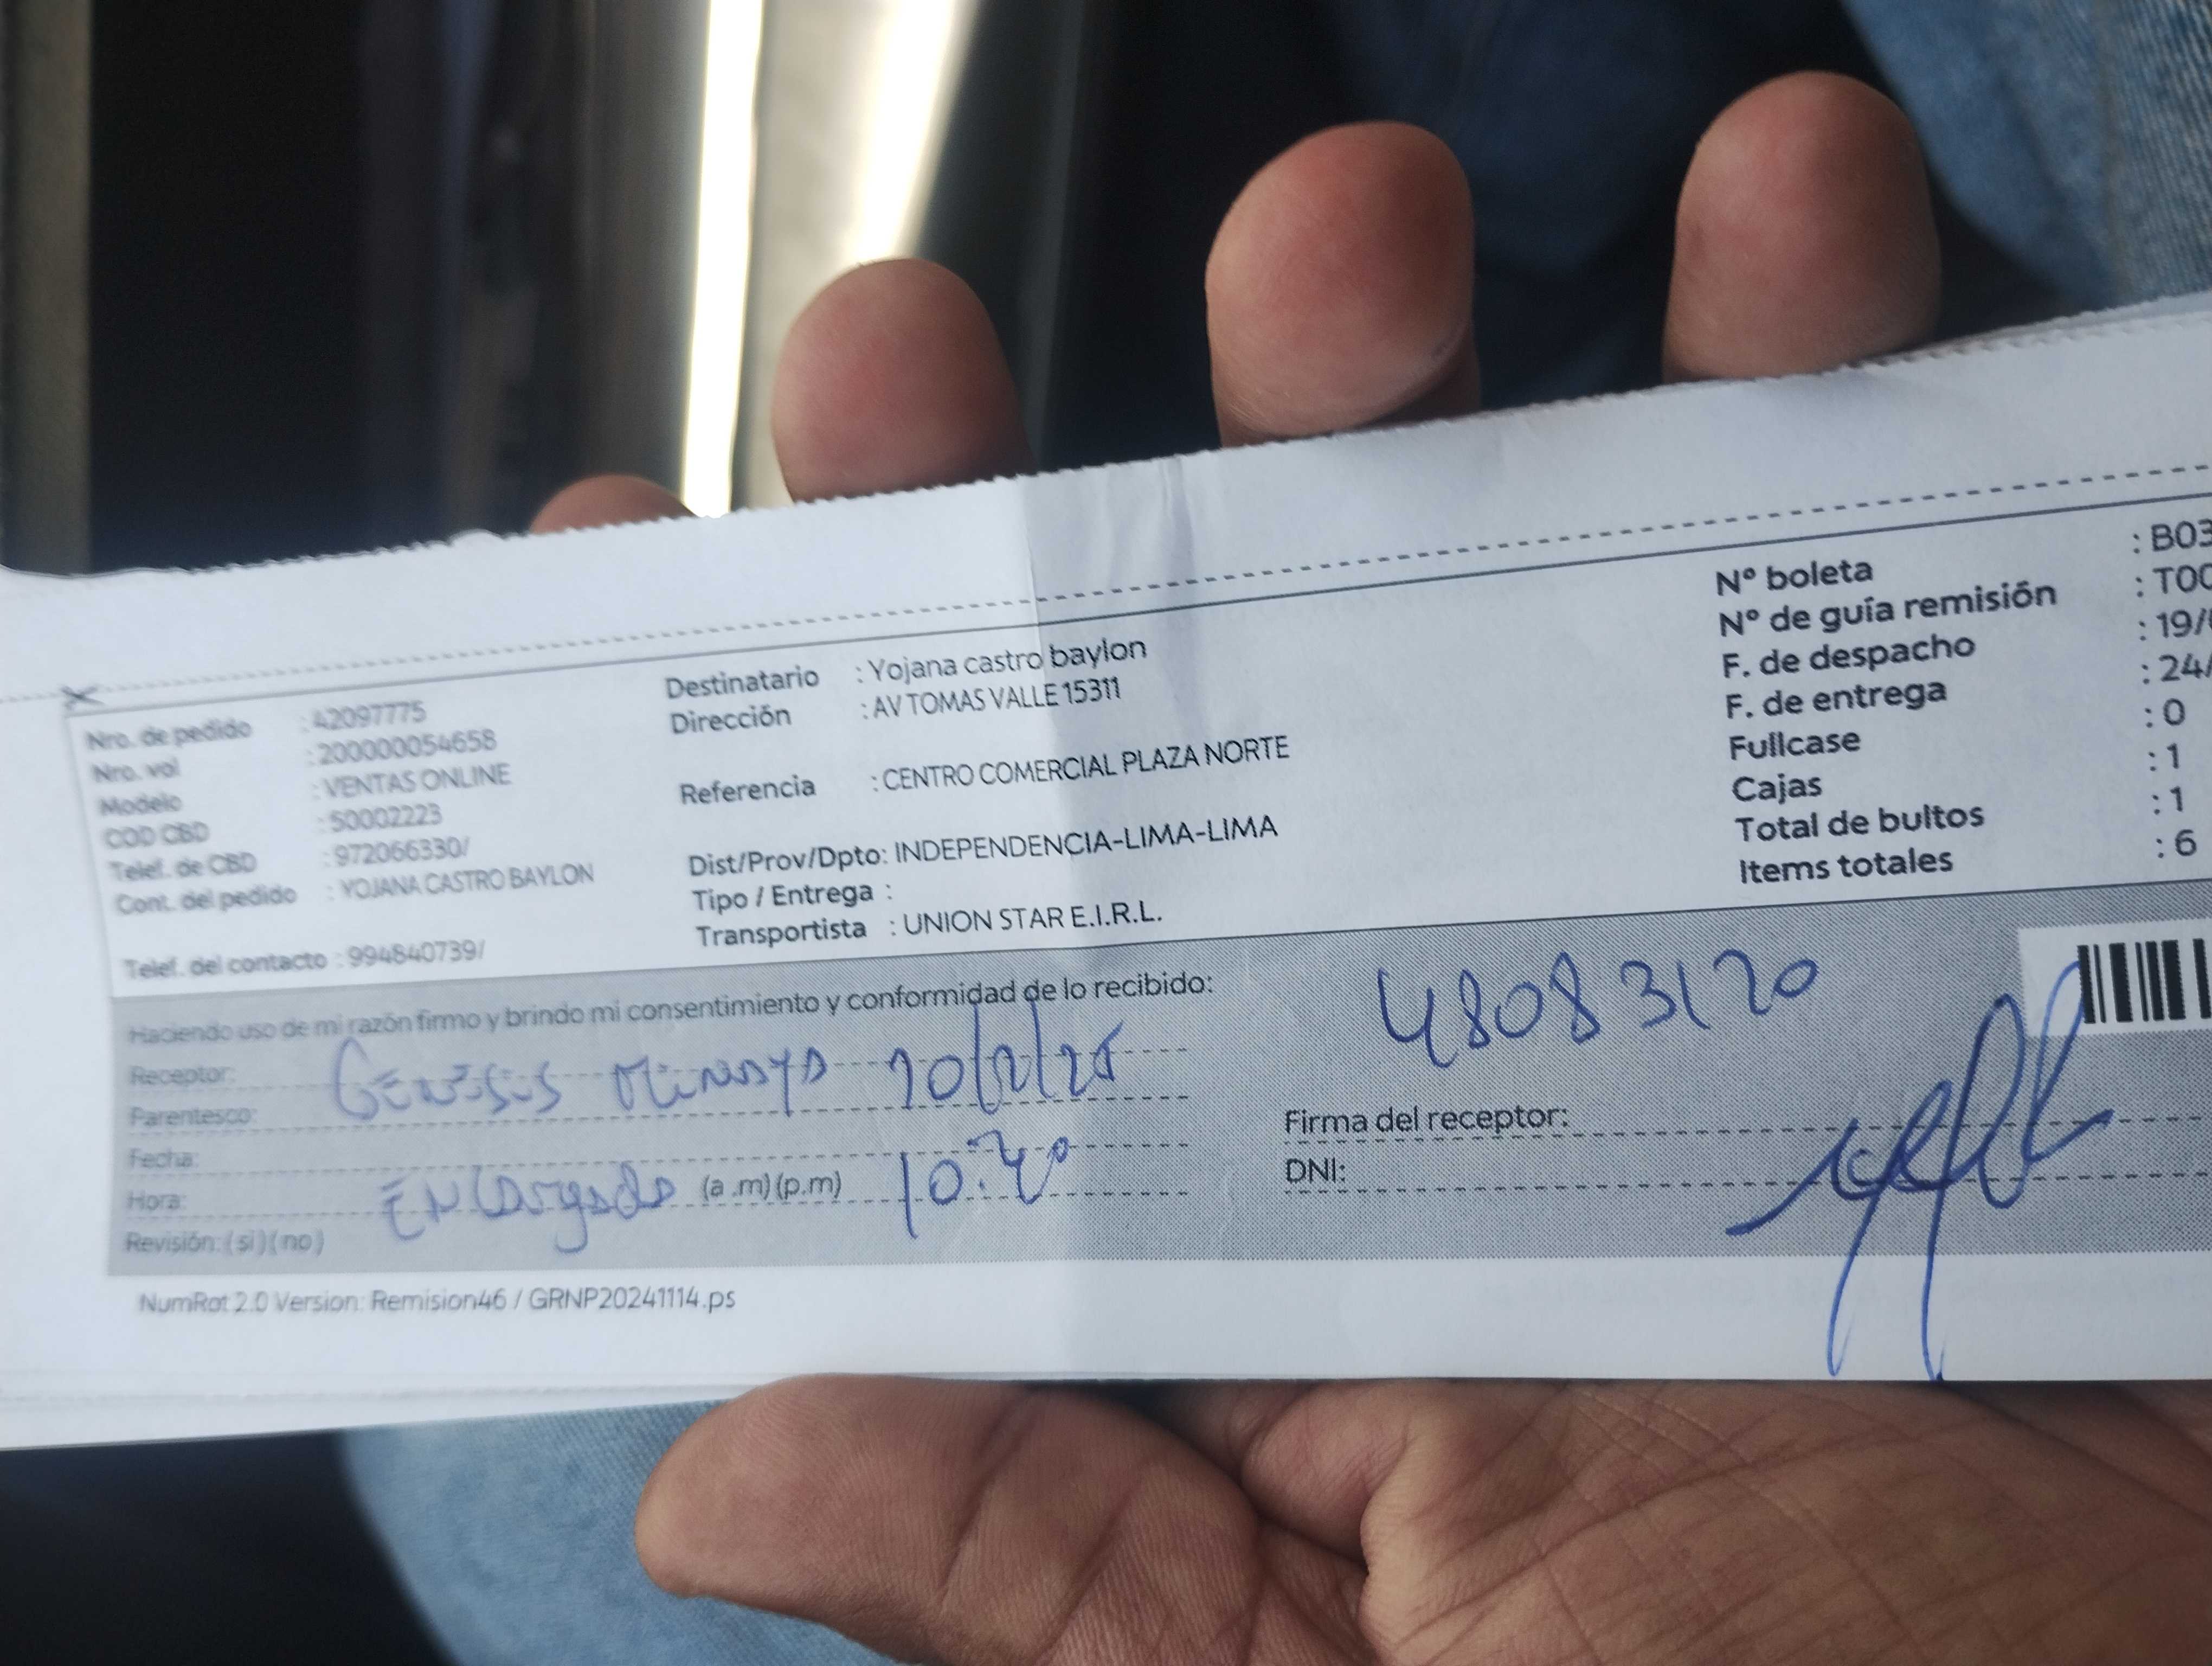 Nro. de pedido : 42097775
Nro. vol : 200000054658
Modelo : VENTAS ONLINE
COD CBD : 50002223
Telef. de CBD : 972066330/
Cont. del pedido : YOJANA CASTRO BAYLON
Telef. del contacto : 994840739/
Destinatario : Yojana castro baylon
Dirección : AV TOMAS VALLE 15311
Referencia : CENTRO COMERCIAL PLAZA NORTE
Dist/Prov/Dpto: INDEPENDENCIA-LIMA-LIMA
Tipo / Entrega :
Transportista : UNION STAR E.I.R.L.
Nº boleta : B03
Nº de guía remisión : T00
F. de despacho : 19/
F. de entrega : 24/
Fullcase : 0
Cajas : 1
Total de bultos : 1
Items totales : 6
Haciendo uso de mi razón firmo y brindo mi consentimiento y conformidad de lo recibido:
Receptor:
Genesis
Parentesco:
Fecha:
Hora: Encargado (a .m) (p.m)
Revisión: ( si ) ( no )
48083120
Firma del receptor:
DNI:
NumRot 2.0 Version: Remision46 / GRNP20241114.ps